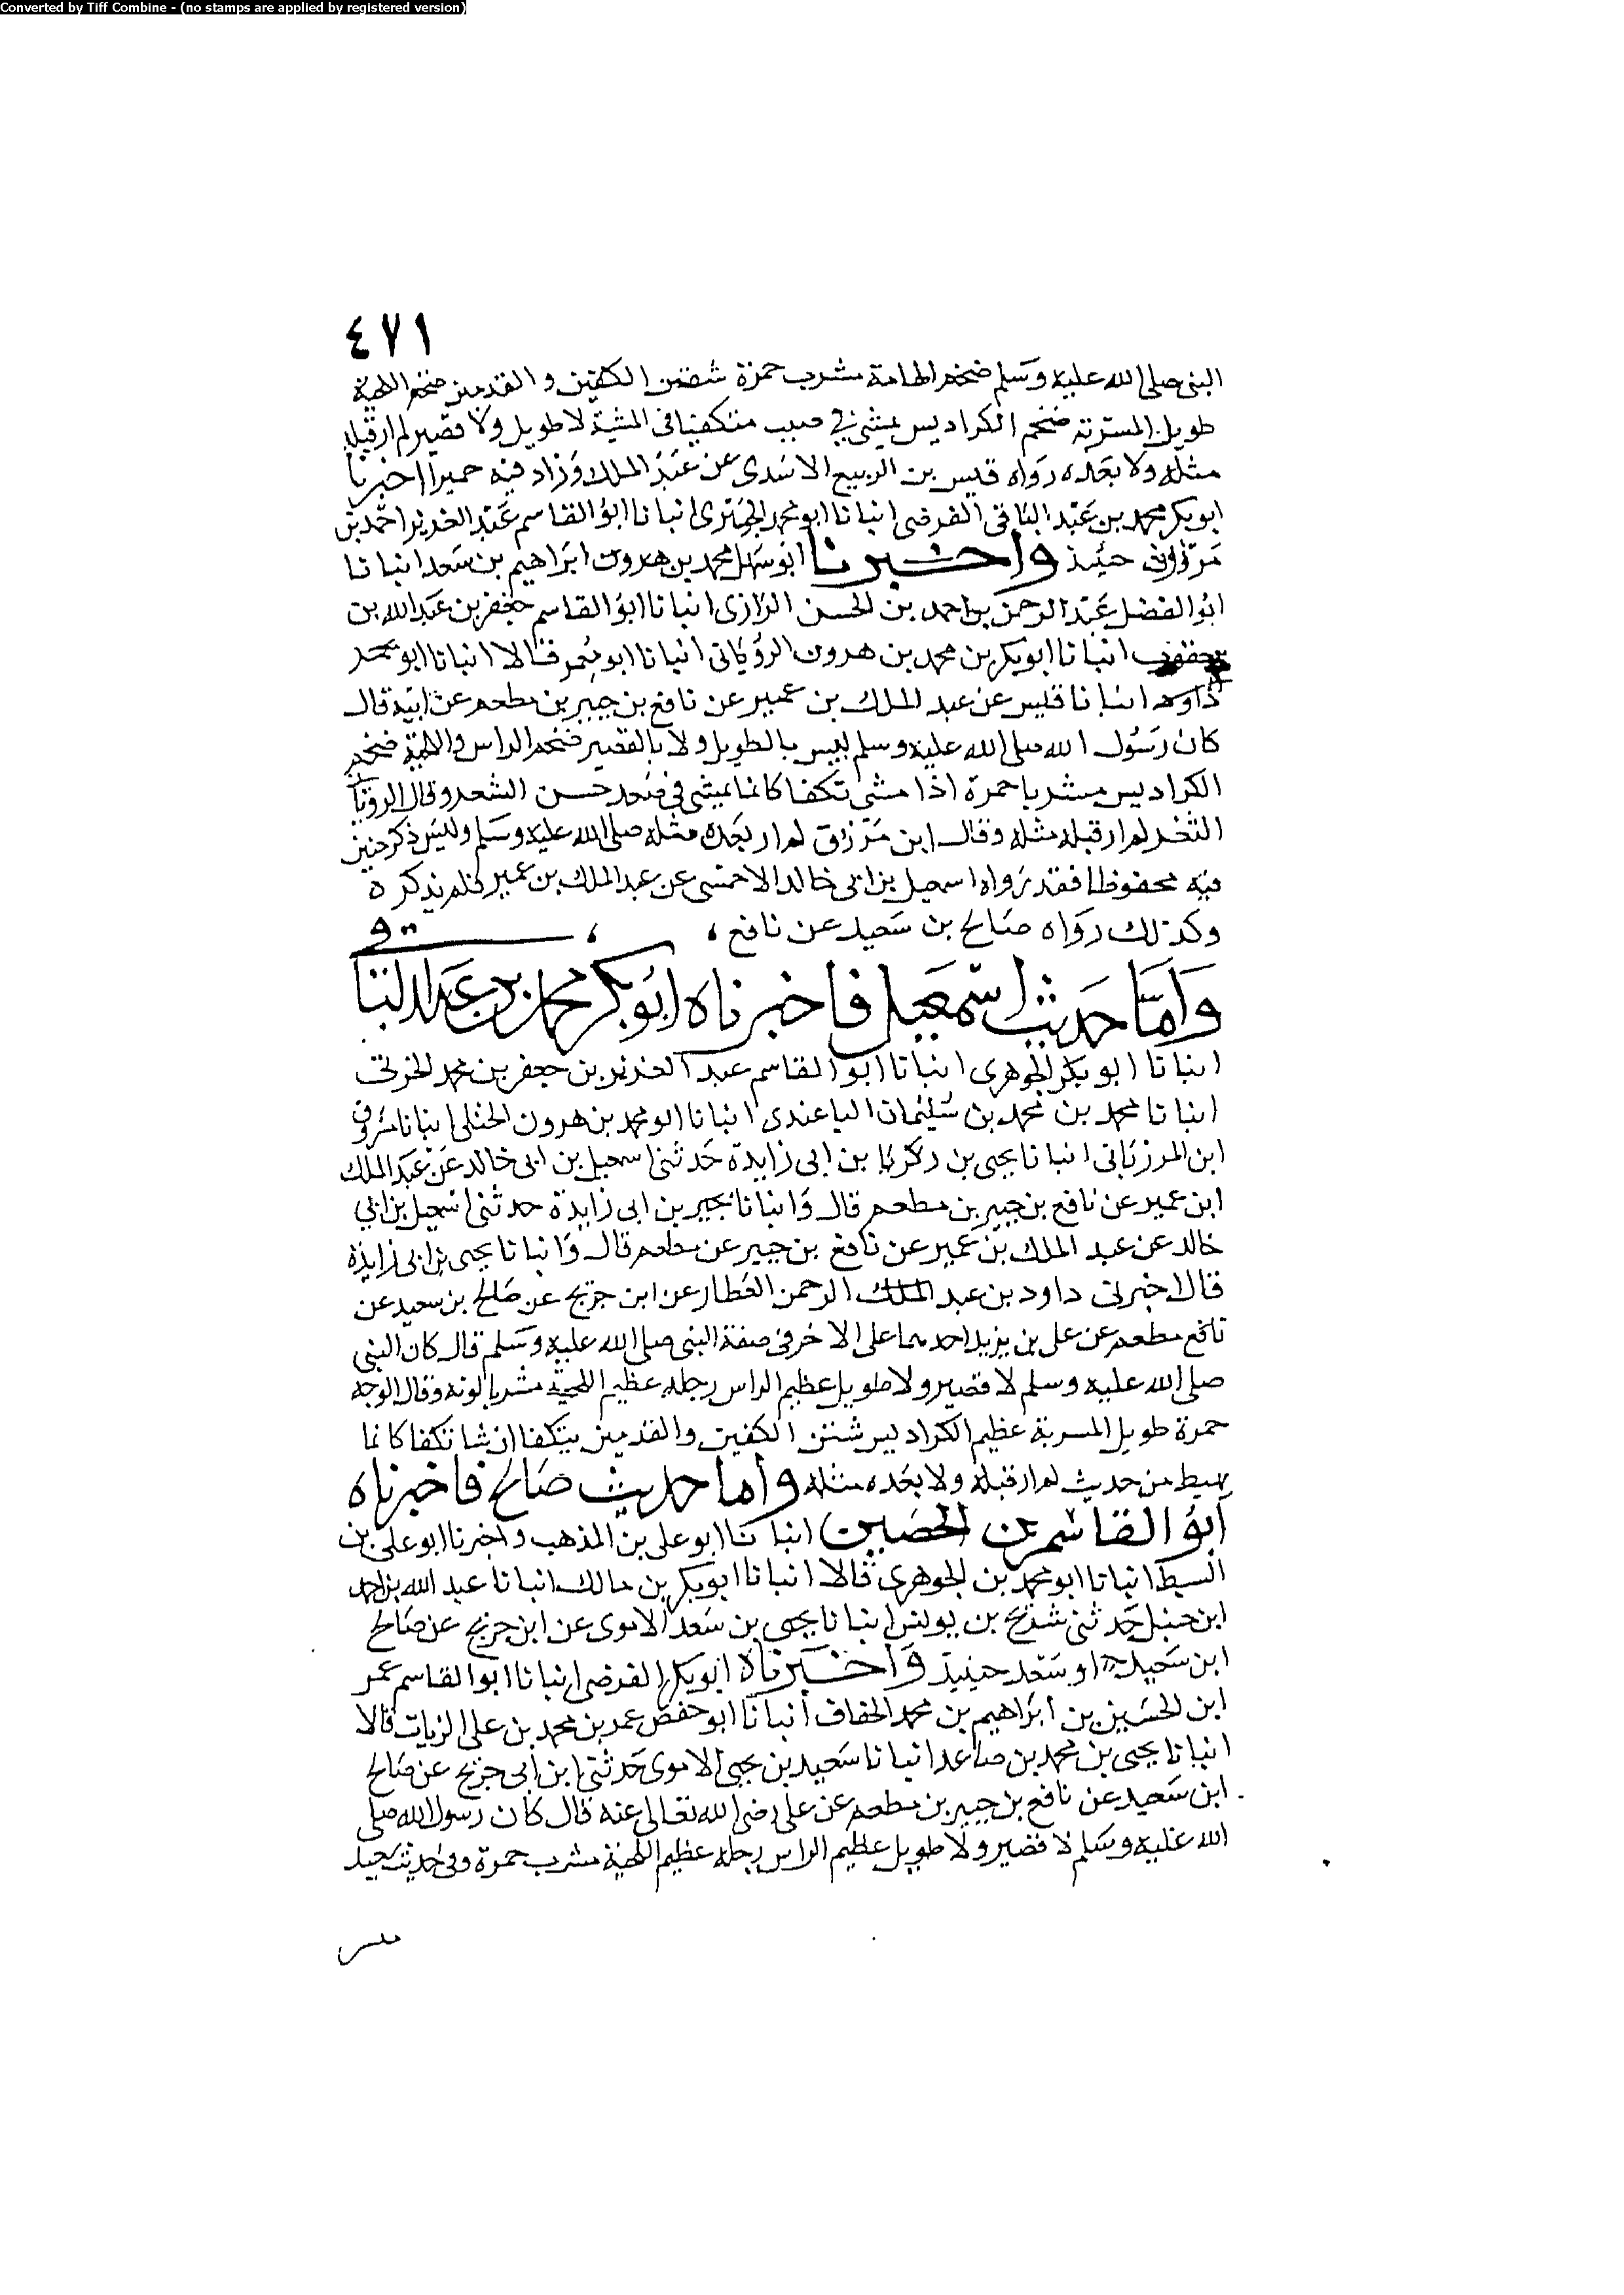 Converted by Tiff Combine - (no stamps are applied by registered version)
٤٧١
النبى صلى الله عليه وسلم ضخم الهامة مشرب حمرة شثن الكفين و القدمين ضخم اللحية
طويل المسربة ضخم الكراديس يمشى فى صبب متكفيا فى المشية لا طويل ولا قصير لم ار قبله
مثله ولا بعده رواه قيس بن الربيع الاسدى عن عبد الملك وزاد فيه حميرا اخبرنا
ابو بكر محمد بن عبد الباقى الفرضى انبانا ابو محمد الجوهرى انبانا ابو القاسم عبد العزيز احمد بن
واخبرنا ابو سهل محمد بن هرون ابراهيم بن سعد انبانا
ابو الفضل عبد الرحمن بن احمد بن الحسن الرازى انبانا ابو القاسم جعفر بن عبد الله بن
يعقوب انبانا ابو بكر بن محمد بن هرون الرويانى انبانا ابو معمر قالا انبانا ابو محمد
داود انبانا قيس عن عبد الملك بن عمير عن نافع بن جبير بن مطعم عن ابيه قال
كان رسول الله صلى الله عليه وسلم ليس بالطويل ولا بالقصير ضخم الراس واللحية ضخم
الكراديس مشربا حمرة اذا مشى تكفا كانما يمشى فى صعد حسن الشعر وقال الرويانى
الثغر لم ار قبله مثله وقال ابن مرزوق لم ار بعده مثله صلى الله عليه وسلم وليس ذكر حنين
فيه محفوظا فقد رواه اسمعيل بن ابى خالد الاحمسى عن عبد الملك بن عمير فلم يذكره
وكذلك رواه صالح بن سعيد عن نافع ،
وَامَّا حَديث اسمعيل فاخبرناه ابو بكر محمد بن عبد الباقى
انبانا ابو بكر الجوهرى انبانا ابو القاسم عبد العزيز بن جعفر بن محمد الخرقى
انبانا محمد بن محمد بن سليمان الباغندى انبانا ابو محمد بن هرون الحنبلى انبانا مسروق
ابن المرزبانى انبانا يحيى بن زكريا بن ابى زايدة حدثنى اسمعيل بن ابى خالد عن عبد الملك
ابن عمير عن نافع بن جبير بن مطعم قال وانبانا يحيى بن ابى زايدة حدثنى اسمعيل بن ابى
خالد عن عبد الملك بن عمير عن نافع بن جبير عن مطعم قال وانبانا يحيى بن ابى زايدة
قال اخبرنى داود بن عبد الملك الرحمن العطار عن ابن جريج عن صالح بن سعيد عن
نافع مطعم عن على بن يزيد احدهما على الاخر فى صفة النبى صلى الله عليه وسلم قال كان النبى
صلى الله عليه وسلم لا قصير ولا طويل عظيم الراس رجله عظيم اللحية مشربا لونه وقال الوجه
حمرة طويل المسربة عظيم الكراديس شثن الكفين والقدمين يتكفا ان شا تكفا كانما
يهبط من حديث لم ار قبله ولا بعده مثله وأما حديث صالح فاخبرناه
ابو القاسم بن الحصين انبانا ابو على بن المذهب واخبرنا ابو على بن
السبط انبانا ابو محمد بن الجوهرى قالا انبانا ابو بكر بن مالك انبانا عبد الله بن احمد
ابن حنبل حدثنى شريح بن يونس انبانا يحيى بن سعد الاموى عن ابن جريج عن صالح
ابن سعيد او سعد حينيذ واخبرناه ابو بكر الفرضى انبانا ابو القاسم عمر
ابن الحسين بن ابراهيم بن محمد الخفاف انبانا ابو حفص عمر بن محمد بن على الزيات قالا
انبانا يحيى بن محمد بن صاعد انبانا سعيد بن يحيى الاموى حدثنى ابن ابى جريج عن صالح
ابن سعيد عن نافع بن جبير بن مطعم عن على رضى الله تعالى عنه قال كان رسول الله صلى
الله عليه وسلم لا قصير ولا طويل عظيم الراس رجله عظيم اللحية مشرب حمرة وفى حديث سعيد